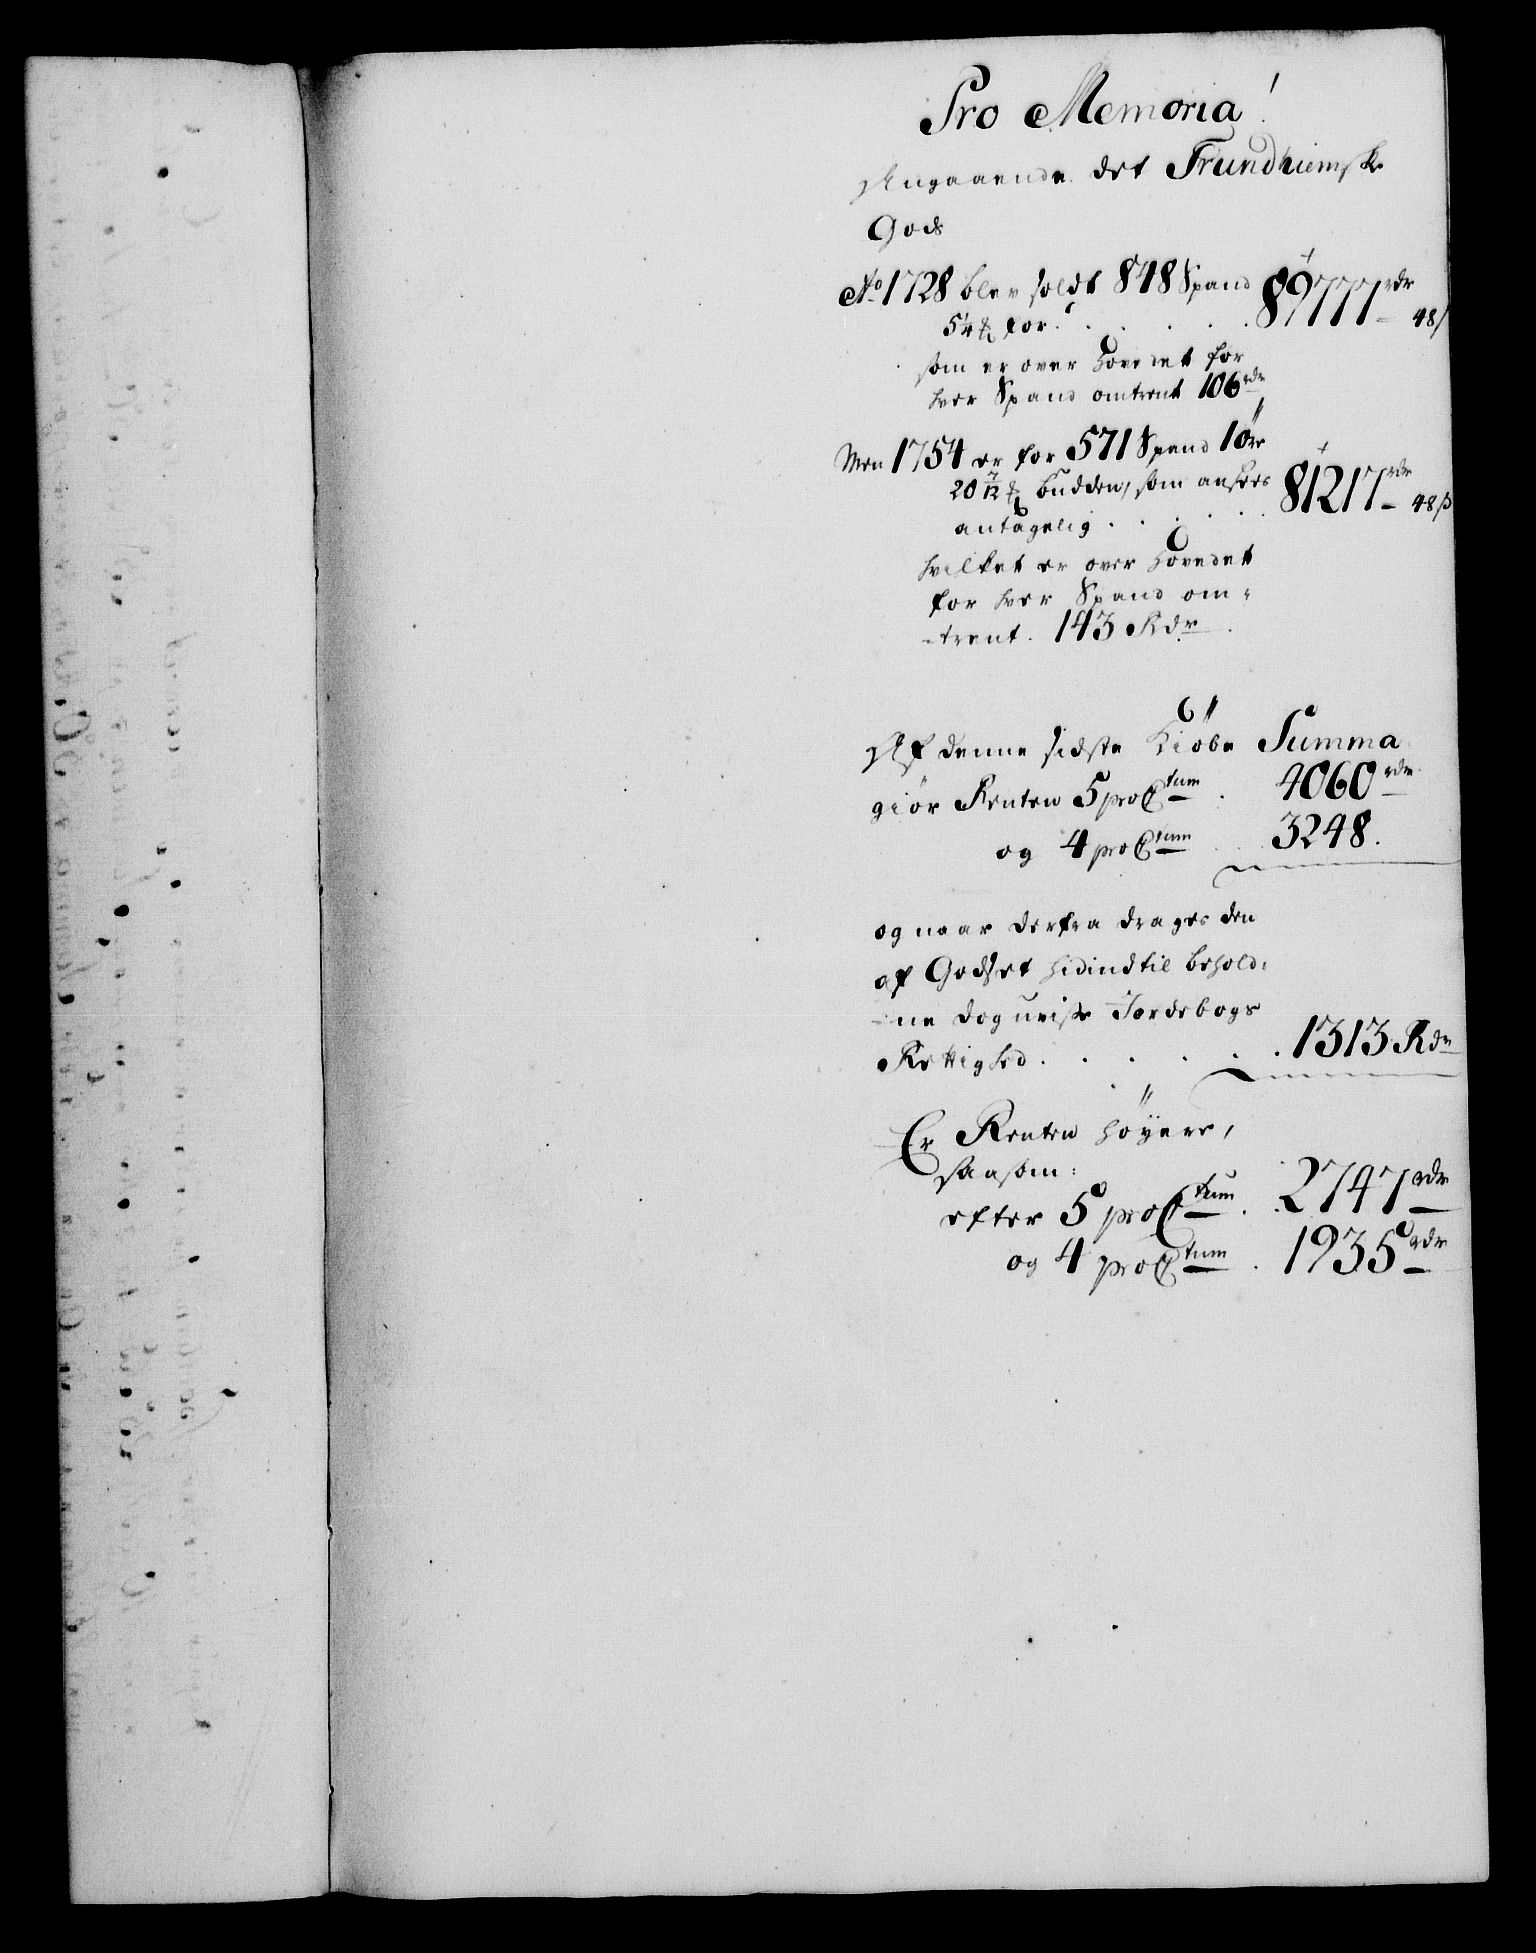 Pro Memoria!
Angaaende det Trundhiemske
Gods
Ao 1728 blev soldt 848 Spand
5¼ ℔ for . . . . . 89777 rdr 48 ß
som er over Hovedet for
hver Spand omtrent 106 rdr
Men 1754 er for 571 Spand 1 ör
20 7/12 ℔ budden, som ansees
antagelig . . . . . 81217 rdr 48 ß
hvilket er over Hovedet
for hver Spand om-
-trent. 143 Rdr.
Af denne sidste Kiöbe Summa
giör Renten 5 pro Ctum . 4060 rdr
og 4 pro Ctum . . 3248.
og naar derfra drages den
af Godset hidindtil behold-
-ne Jordebogs
Rettighed . . . . . 1313 Rdr
Er Renten höyere,
saasom:
efter 5 pro Ctum . 2747 rdr
og 4 pro Ctum . 1935 rdr